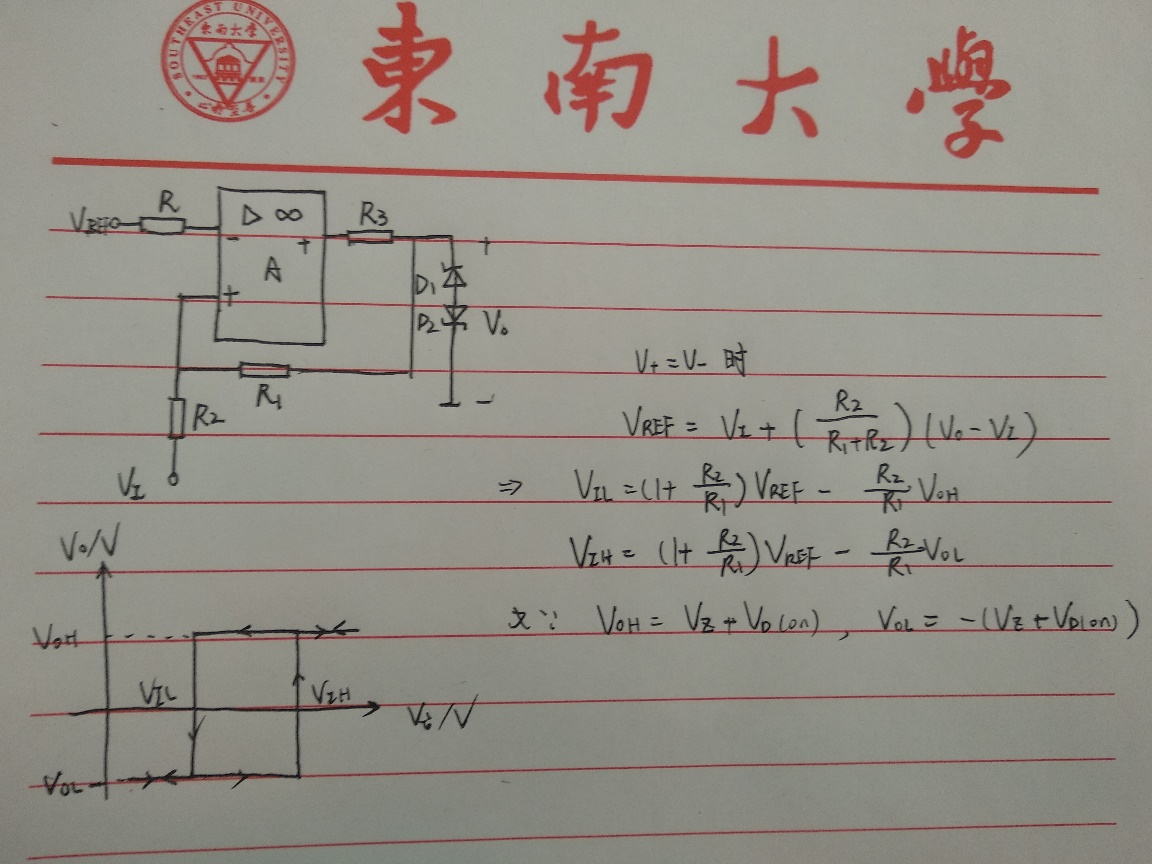 SOUTHEAST UNIVERSITY
東南大學
東南大學
VREF R ▷ ∞ R3
- + +
A D1
+ D2 Vo
R1 -
R2
VI
V+ = V- 时
VREF = VI + (R2/(R1+R2))(Vo - VI)
⇒ VIL = (1+ R2/R1)VREF - R2/R1 VOH
VIH = (1+ R2/R1)VREF - R2/R1 VOL
又∵ VOH = VZ + VD(on), VOL = -(VZ + VD(on))
Vo/V
VOH
VIL VIH
Vi/V
VOL